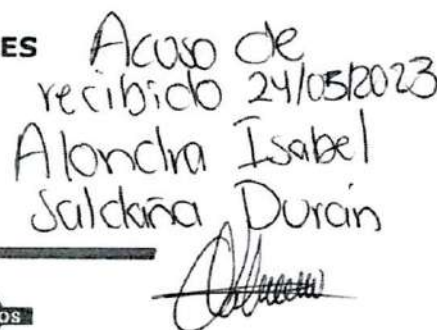 ES
Acuso de
recibido 24/05/2023
Alondra Isabel
Saldaña Durán
OS